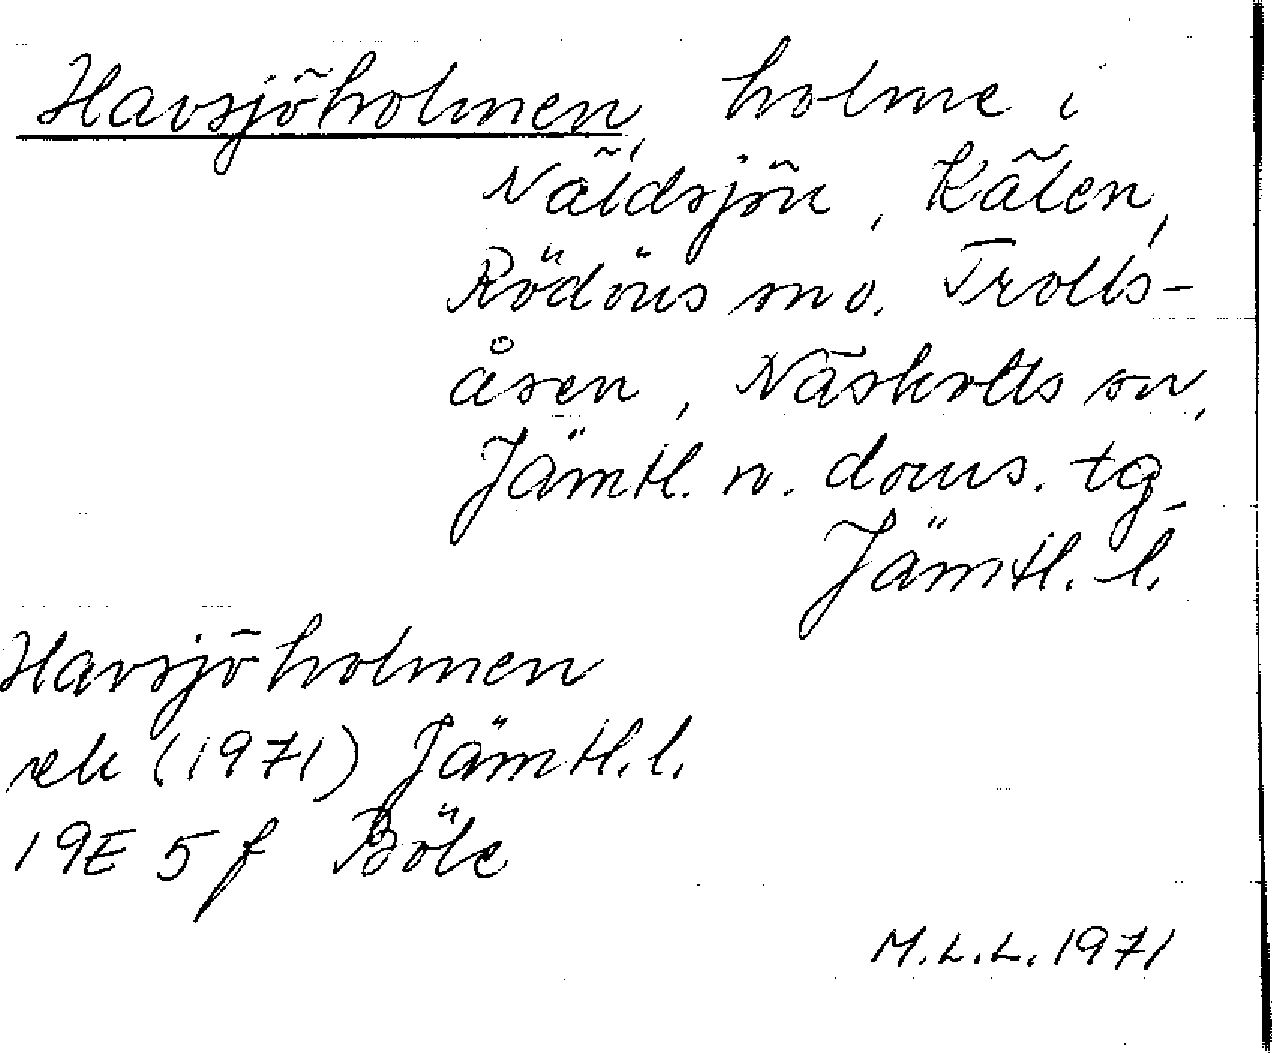 Havsjöholmen, holme i
Näldsjön, Kälen,
Rödöns sn o. Trolls-
åsen, Näskotts sn,
Jämtl. n. doms. tg
Jämtl. l.
Havsjöholmen
rek (1971) Jämtl. l.
19E 5f Böle
M.L.L. 1971